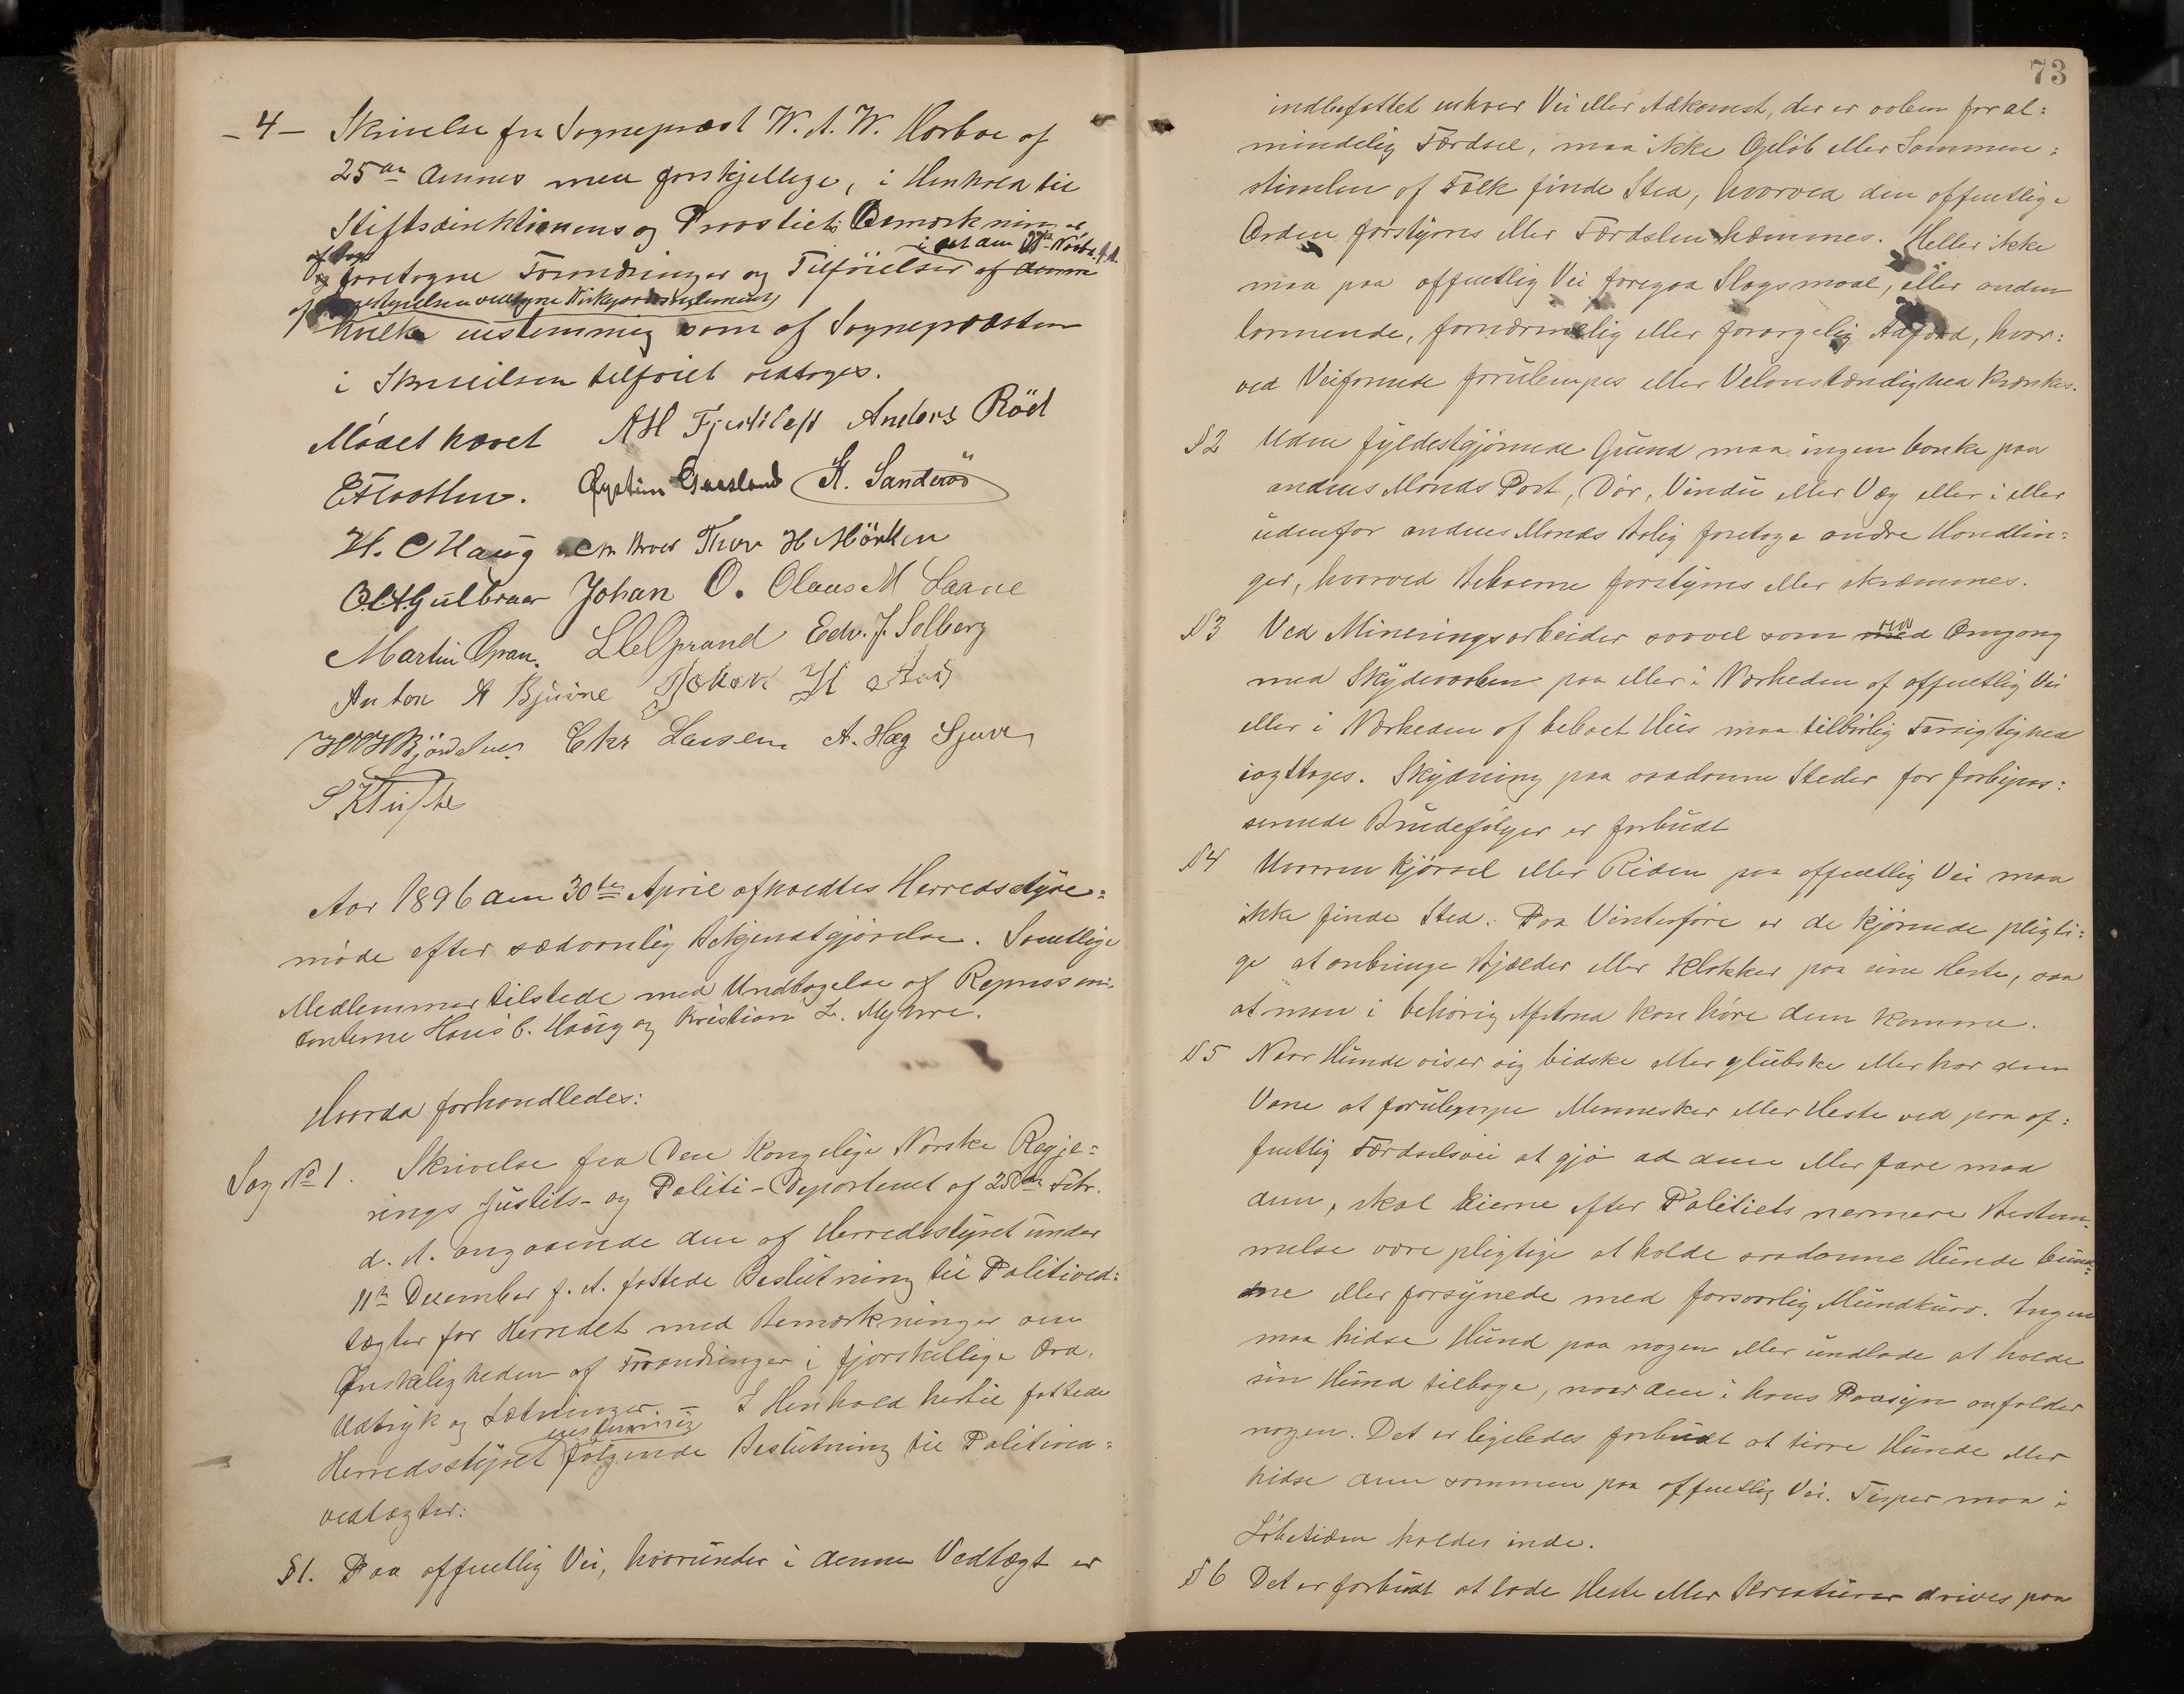 - 4 - Skrivelse fra Sogneprest W. A. W. Harboe af
25de dennes med forskjellige, i Henhold til
Stiftsdirektionens og Provstiets Bemærkninger
foretagne Forandringer og Tilføielser i det den Novbr. f. A.
af denne
vedtagne Kirkegaardsreglement,
hvilke enstemmig som af Sognepræsten
i Skrivelsen tilføiet vedtoges.
Mødet hævet AH Anders Röd
Øystein Gaasland A. Sanderöd
H. C Haug Thor H Mörken
Gulbraar Johan O. Olaus M Laane
Martin Opran. Oprand Edv. J. Solberg
Anton A Bjurne
Chr Larsen A. Hæg Sjuve
Aar 1896 den 30te April afholdtes Herredsstyre=
møde efter sædvanlig Bekjendtgjørelse. Samtlige
Medlemmer tilstede med Undtagelse af Repræsen=
tanterne Hans C. Haug og Kristian L. Myhre.
Hvorda forhandledes:
Sag No 1. Skrivelse fra Den Kongelige Norske Regje=
rings Justits- og Politi-Departemet af 25de Febr.
d. A. angaaende den af Herredsstyret under
11te December f. A. fattede Beslutning til Politived=
tægter for Herredet med Bemærkninger om
Ønskeligheden af Forandringer i fjorskillige Ord,
Udtryk og Sætninger. – I Henhold hertil fattede
enstemmig
Herredsstyret følgende Beslutning til Politived=
vedtægter:
§1. Paa offentlig Vei, hvorunder i denne Vedtægt er
73
indbefattet enhver Vei eller Adkomst, der er aaben for al=
mindelig Færdsel, maa ikke Opløb eller Sammen=
stimlen af Folk finde Sted, hvorved den offentlige
Orden forstyrres eller Færdslen hæmmes. Heller ikke
maa paa offentlig Vei foregaa Slagsmaal, eller anden
larmende, fornærmelig eller forargelig Adfærd, hvor=
ved Veifarende forulempes eller Velanstændighed krænkes.
§2 Uden fyldestgjørende Grund maa ingen banke paa
andens Mands Port, Dør, Vindu eller Væg eller i eller
udenfor andens Mands Bolig foretage andre Handlin=
ger, hvorved Beboerne forstyrres eller skræmmes.
§3 Ved Mineringsarbeider saavel som med ved Omgang
med Skydevaaben paa eller i Nærheden af offentlig Vei
eller i Nærheden af beboet Hus maa tilbørlig Forsigtighed
iagttages. Skydning paa saadanne Steder for forbipas=
serende Brudefølger er forbudt
§4 Uvorren Kjørsel eller Riden paa offentlig Vei maa
ikke finde Sted. Paa Vinterføre er de kjørende pligti=
ge at anbringe Bjælder eller Klokker paa sine Heste, saa
at man i behørig Afstand kan høre dem komme.
§5 Naar Hunde viser sig bidske eller glubske eller har den
Vane at forulempe Mennesker eller Heste ved paa of=
fentlig Færdselsvei at gjø ad dem eller fare mod
dem, skal Eierne efter Politiets nermere Bestem=
melse være pligtige at holde saadanne Hunde bun=
dne eller forsynede med forsvarlig Mundkurv. Ingen
maa hidse Hund paa nogen eller undlade at holde
sin Hund tilbage, naar den i hans Paasyn anfalder
nogen. Det er ligeledes forbudt at tirre Hunde eller
hidse dem sammen paa offentlig Vei. Tisper maa i
Løbetiden holdes inde.
§6 Det er forbudt at lade Heste eller Kreaturer drives paa